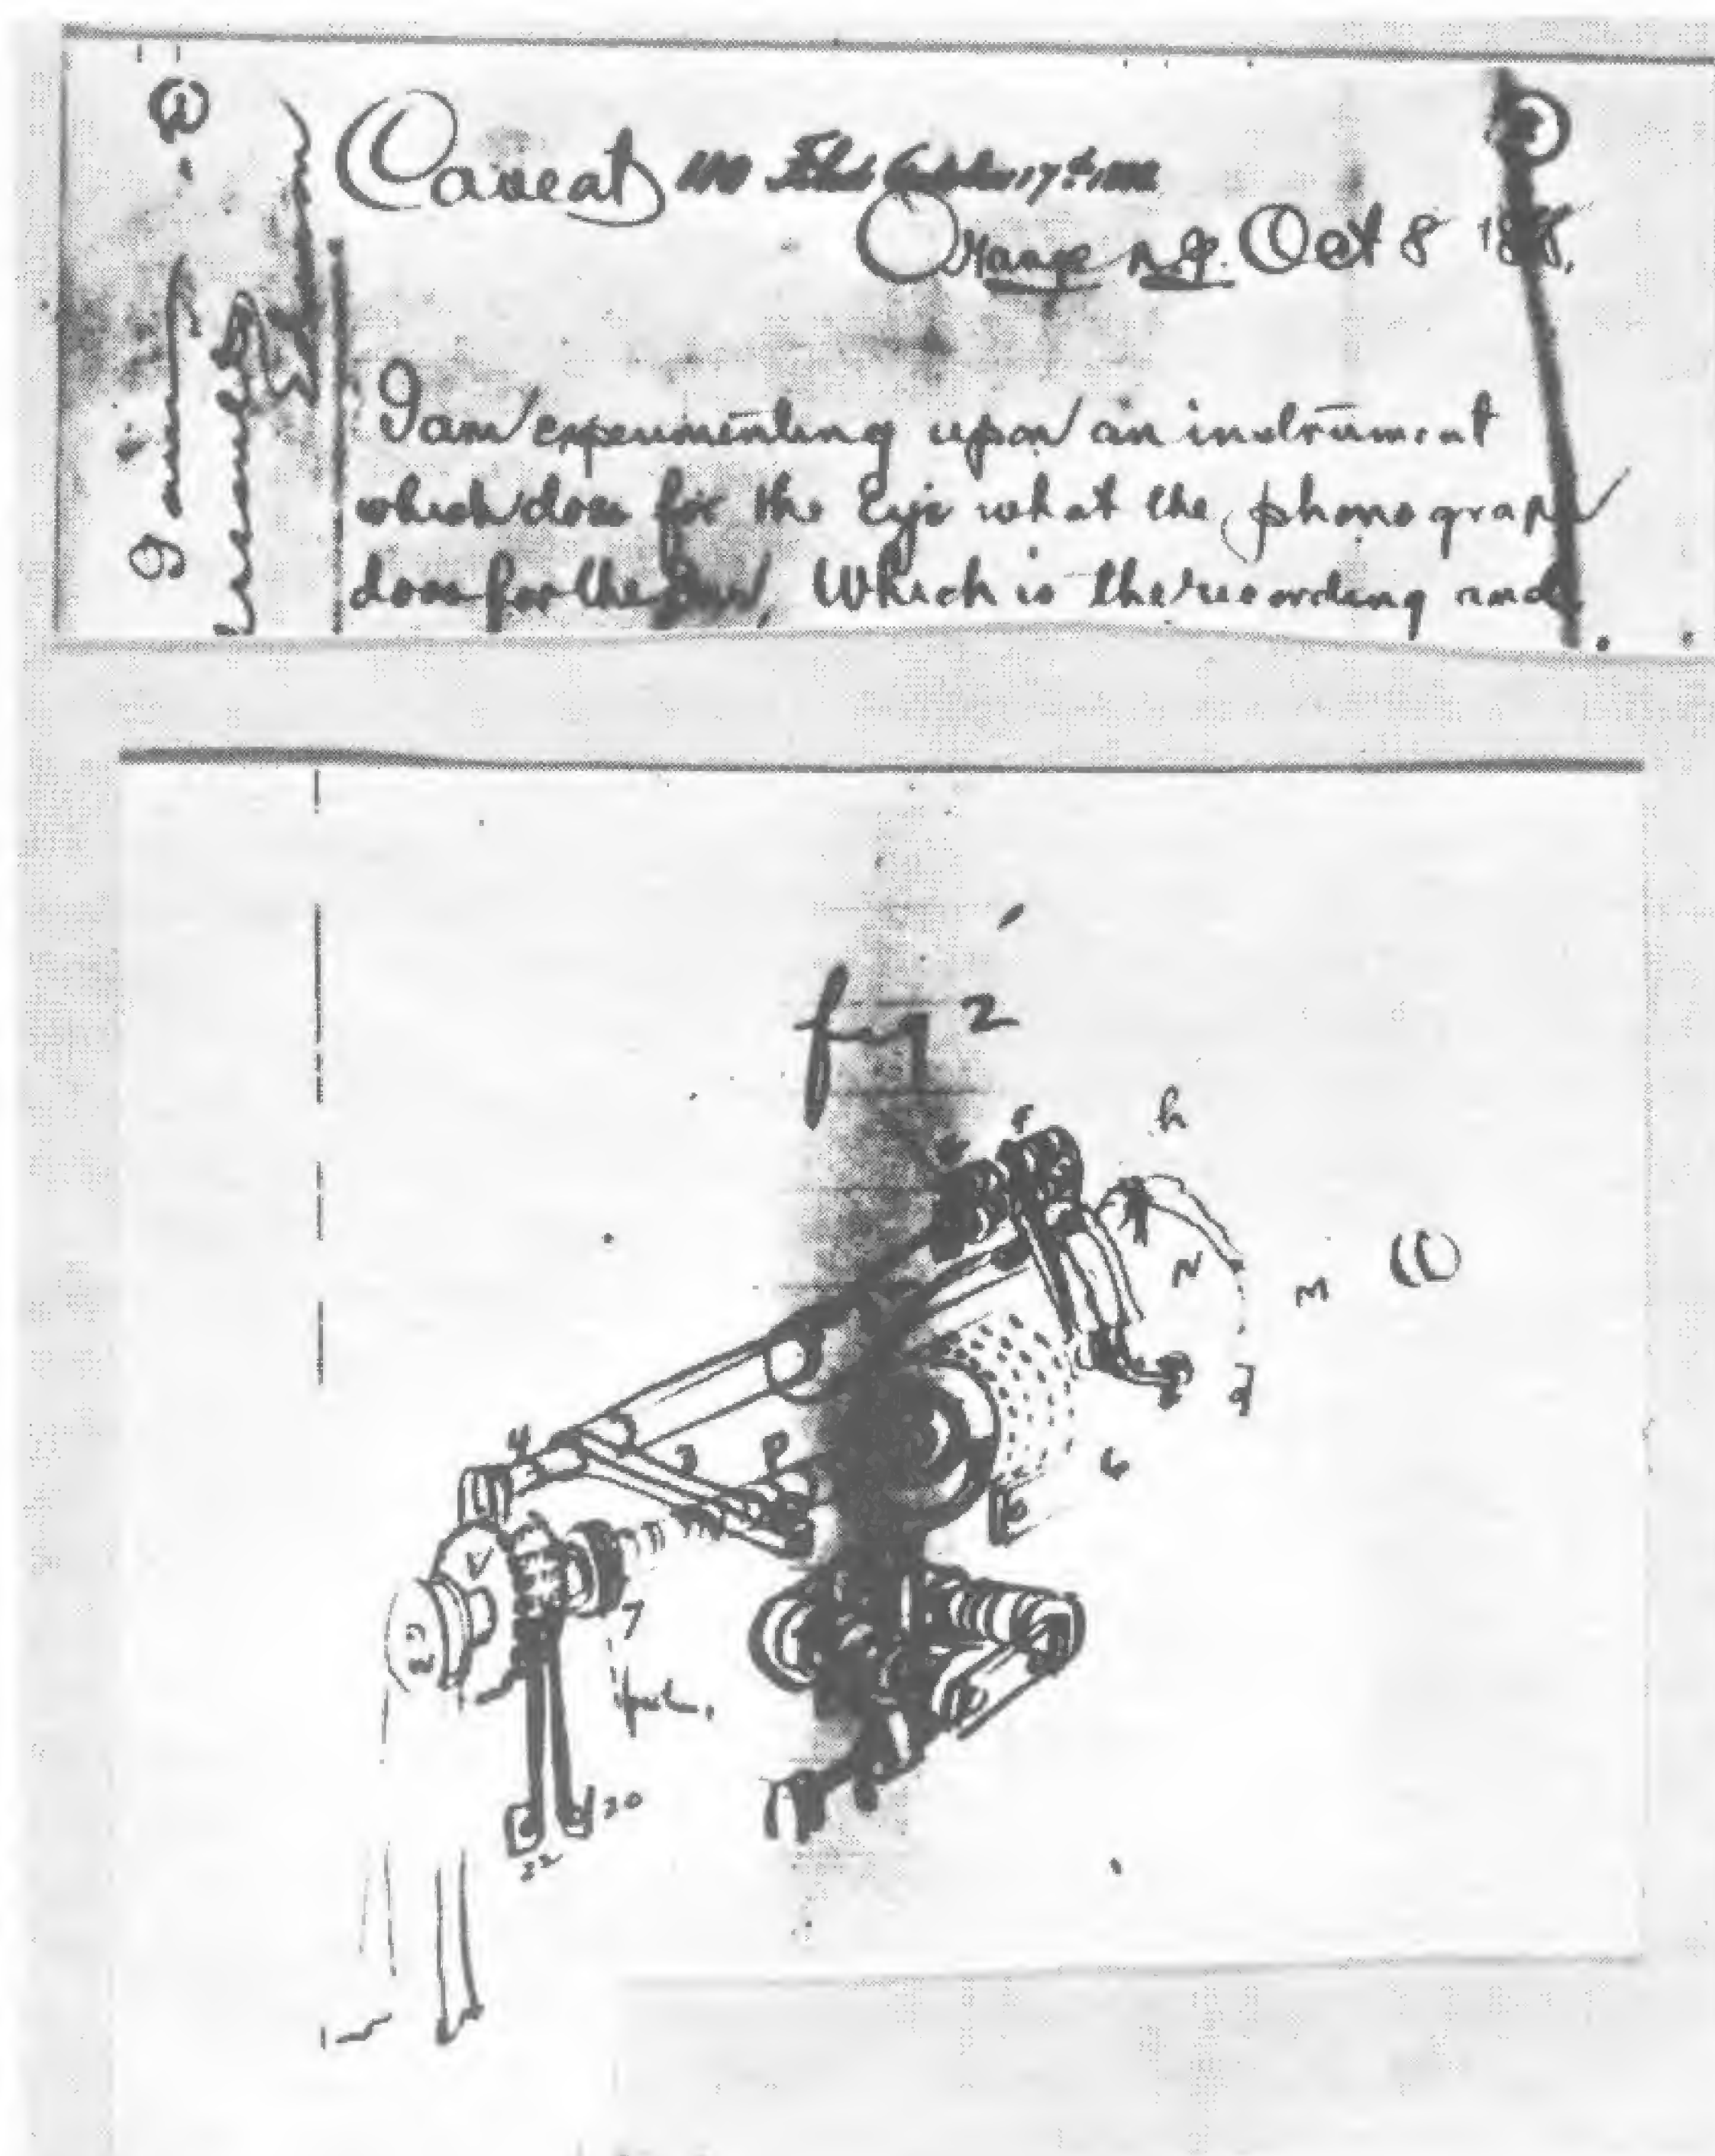 Caveat 110 Filed October 17th 1888
Orange NJ. Oct 8 188
I am experimenting upon an instrument
which does for the Eye what the phonograph
does for the Ear, Which is the recording and
fig 2
h
N
M
4
3
P
6
V
7
20
22